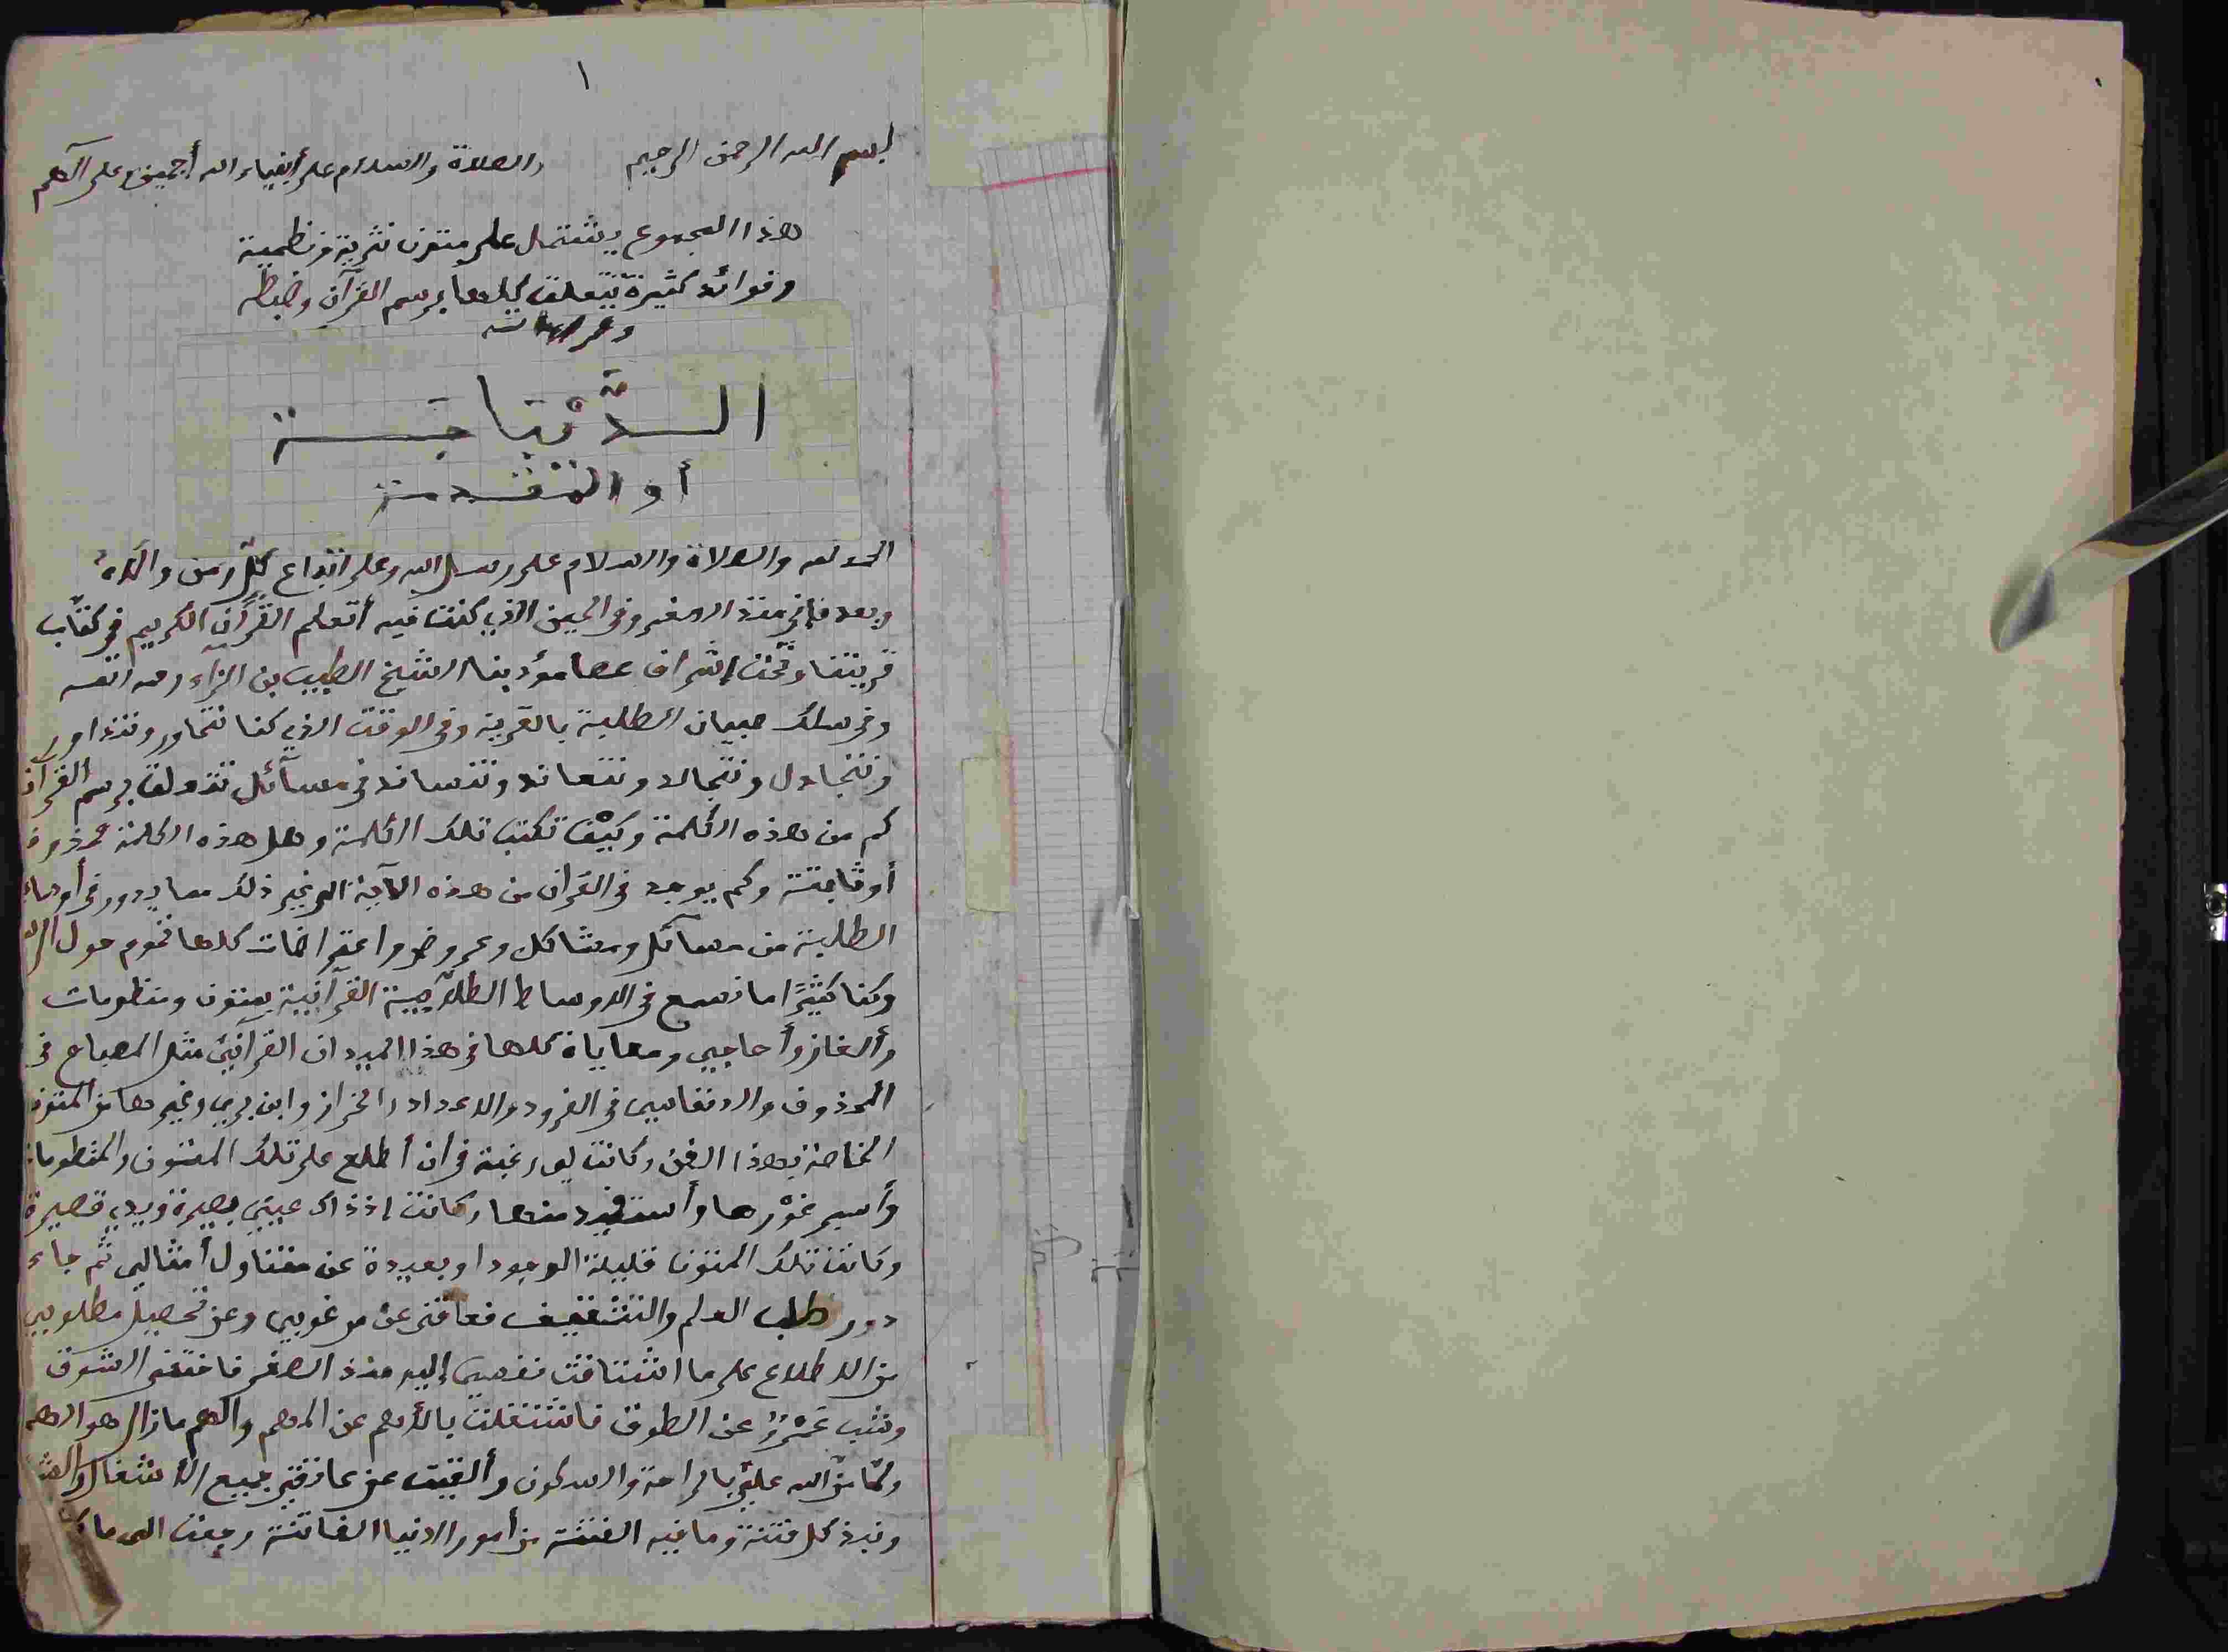 ١
بسم الله الرحمن الرحيم والصلاة والسلام على أنبياء الله أجمعين وعلى آلهم
هذا المجموع يشتمل على متون نثرية ونظمية
وفوائد كثيرة تتعلق كلها برسم القرآن وضبطه
الديباجة
أو المقدمة
الحمد لله والصلاة والسلام على رسل الله وعلى اتباع كل من والاه
وبعد فإني منذ الصغر وفي الحين الذي كنت فيه أتعلم القرآن الكريم في كتاب
قريتنا وتحت إشراف عصا مؤدبنا الشيخ الطيب بن
وفي سلك صبيان الطلبة بالقرية وفي الوقت الذي كنا نتحاور ونتذاور
ونتجادل ونتجالد ونتعاند ونتساند في مسآئل تتعلق برسم القرآن
كم من هذه الكلمة وكيف تكتب تلك الكلمة وهل هذه الكلمة محذوفة
أو ثابتة وكم يوجد في القرآن من هذه الآية الى غير ذلك مما يدور في أوساط
الطلبة من مسآئل ومشاكل وعروض واعتراضات كلها تحوم حول الرسم
وكنا كثيرًا ما نسمع في الاوساط الطلابية القرآنية بمتون ومنظومات
وألغاز وأحاجي ومعاياة كلها في هذا الميدان القرآني مثل المصباح في
المحذوف والدنفاسي في الفرود والاعداد والخراز وابن بري وغيرها من المتون
الخاصة بهذا الفن وكانت لي رغبة في أن أطلع على تلك المتون والمنظومات
وأسبر غوْرها وأستفيد منها وكانت إذ ذاك عيني بصيرة ويدي قصيرة
وكانت تلك المتون قليلة الوجود او بعيدة عن متناول أمثالي ثم جاء
دور طلب العلم والتثقيف فعاقني عن مرغوبي وعن تحصيل مطلوبي
من الاطلاع على ما اشتاقت نفسي إليه منذ الصغر فاختفى الشوق
وشب عَمْرٌو عن الطوق فانشغلت بالأهم عن المهم والهم مازال هو الهم
ولما منّ الله عليَّ بالراحة والسكون وألقيت عن عاتقي جميع الأشغال
ونبذ كل فتنة وما فيه الفتنة من أمور الدنيا الفاتنة رجعت الى ما